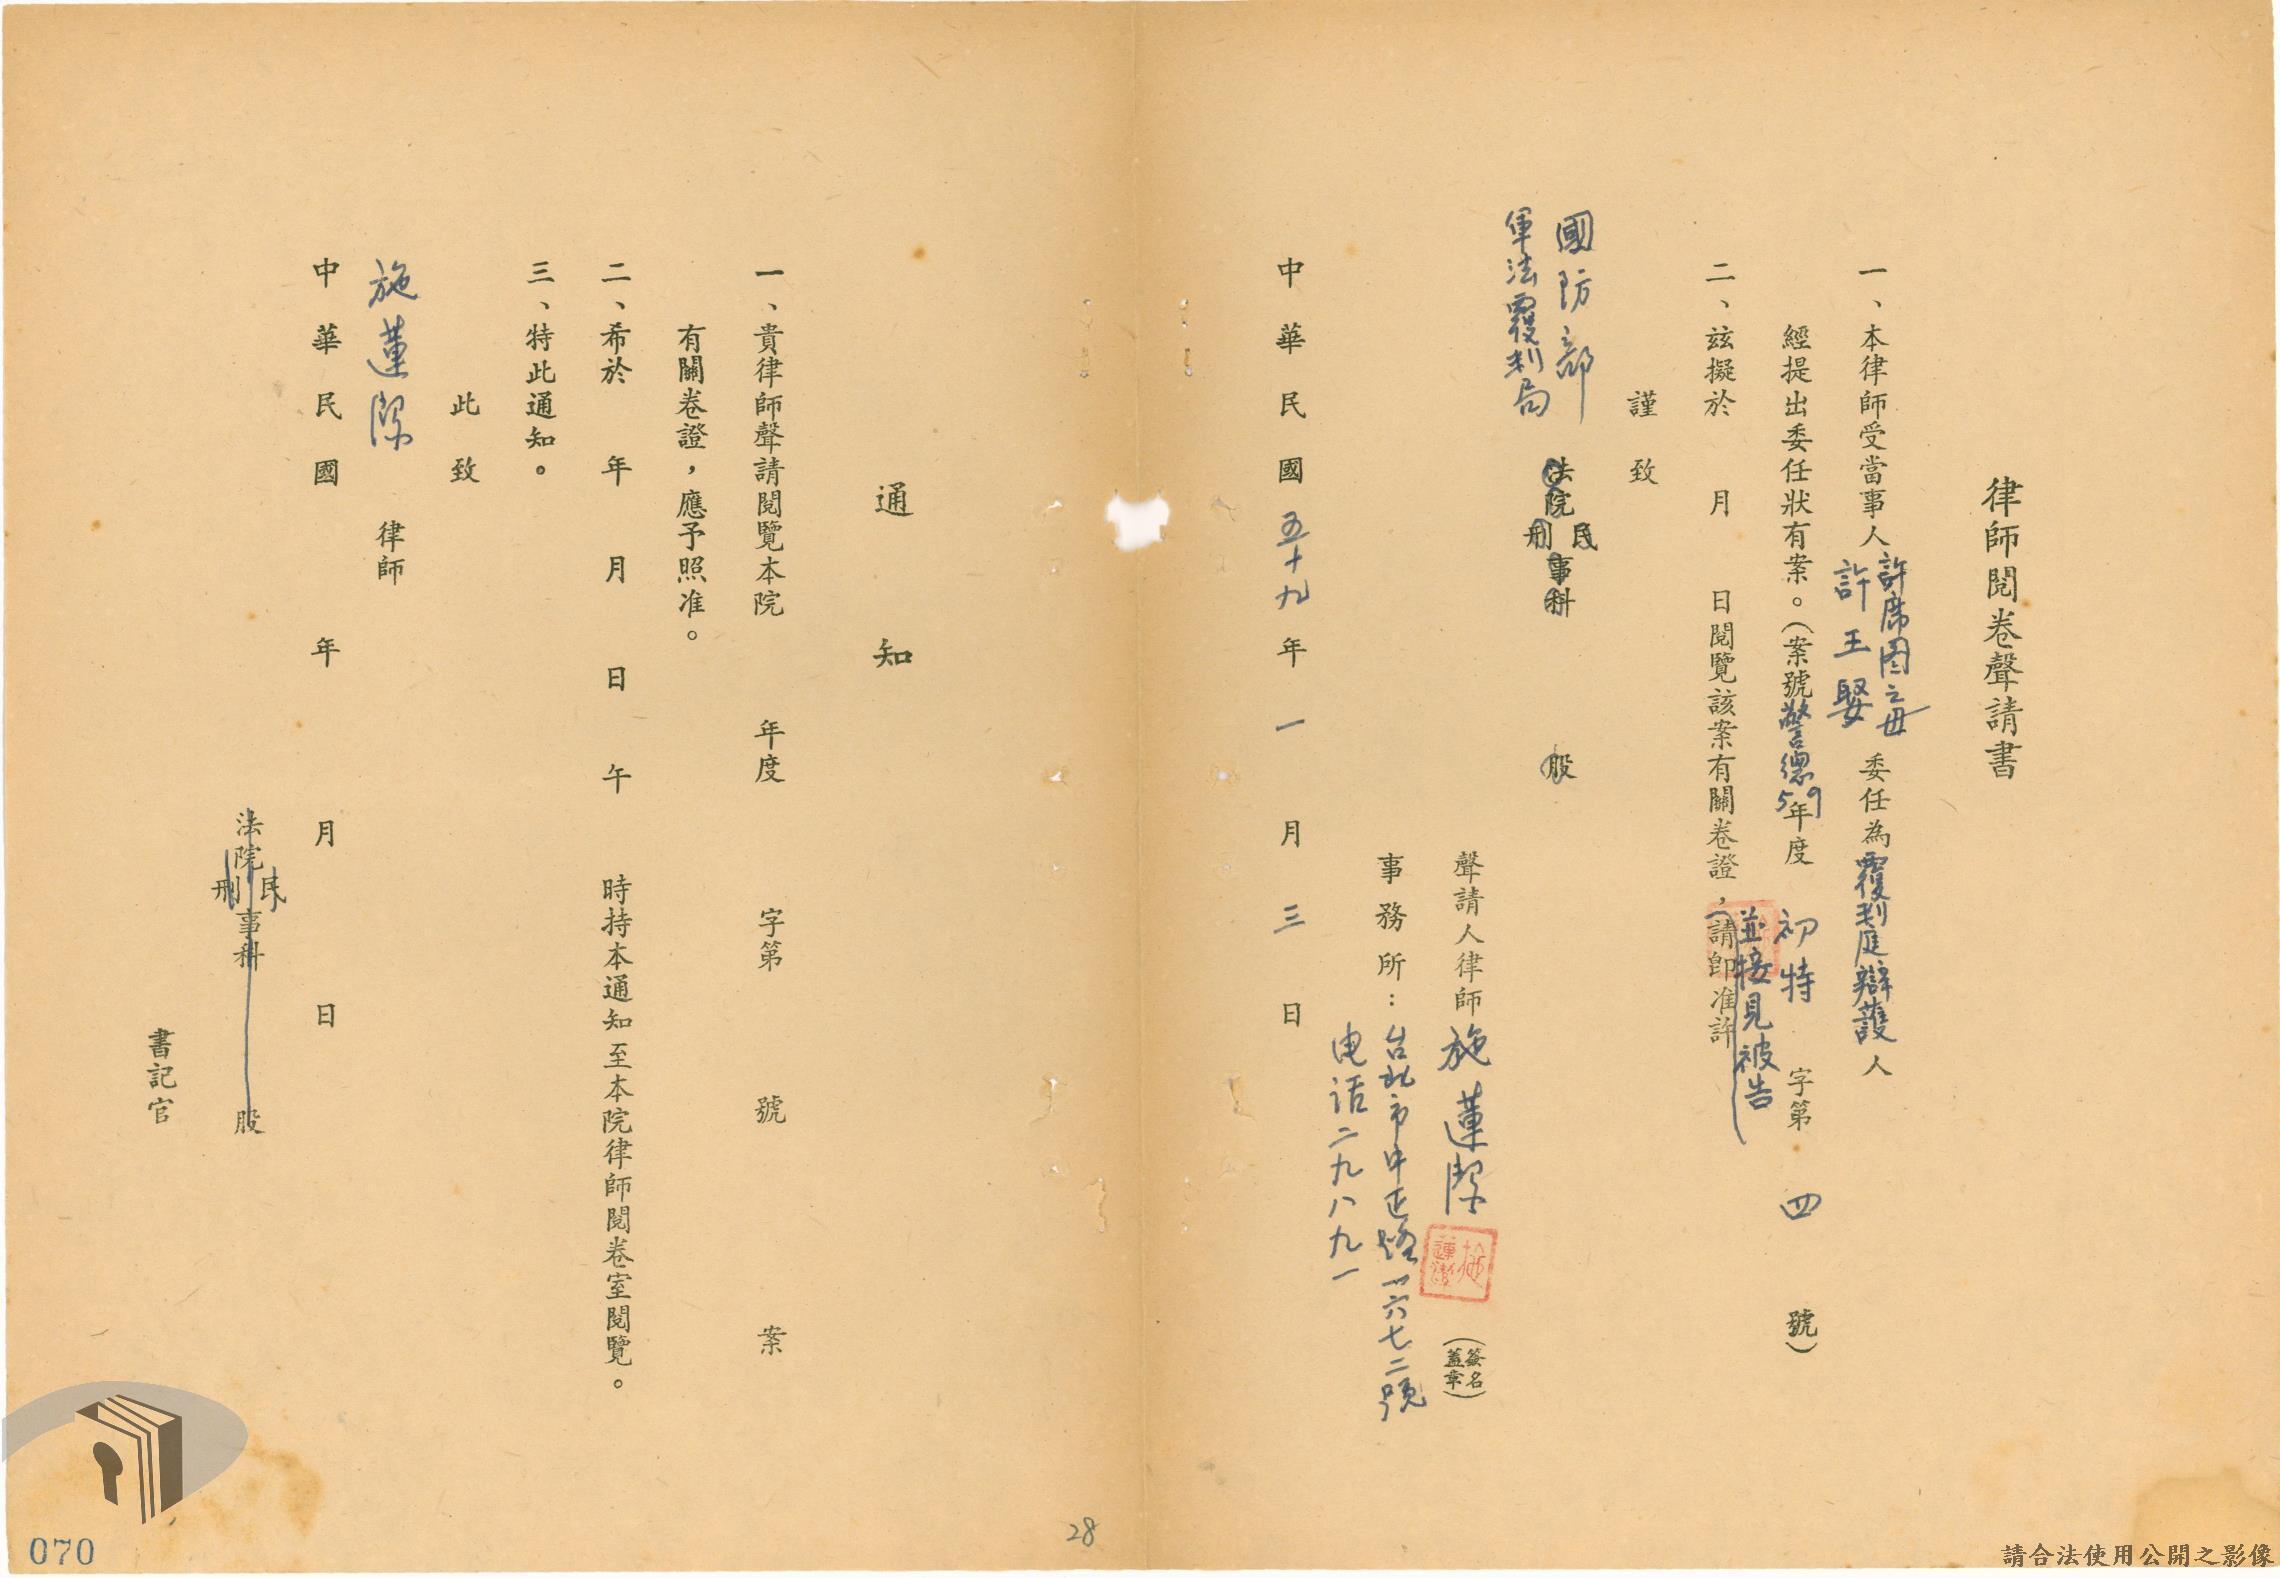 律師閱卷聲請書
一、本律師受當事人許席圖之母
許王娶
委任為覆判庭辯護人
經提出委任狀有案。（案號警總59年度初特字第四號）
二、玆擬於　月　日閱覽該案有關卷證，請卽准許
並接見被告
謹致
國防部
軍法覆判局
法院民刑事科　股
聲請人律師施蓮潔（簽名蓋章）
事務所：台北市中正路一六七二號
电话二九八九一
中華民國五十九年一月三日
通知
一、貴律師聲請閱覽本院　年度　字第　號　案
有關卷證，應予照准。
二、希於　年　月　日　午　時持本通知至本院律師閱卷室閱覽。
三、特此通知。
此致
施蓮潔律師
中華民國　年　月　日
法院民刑事科　股
書記官
28
070
請合法使用公開之影像